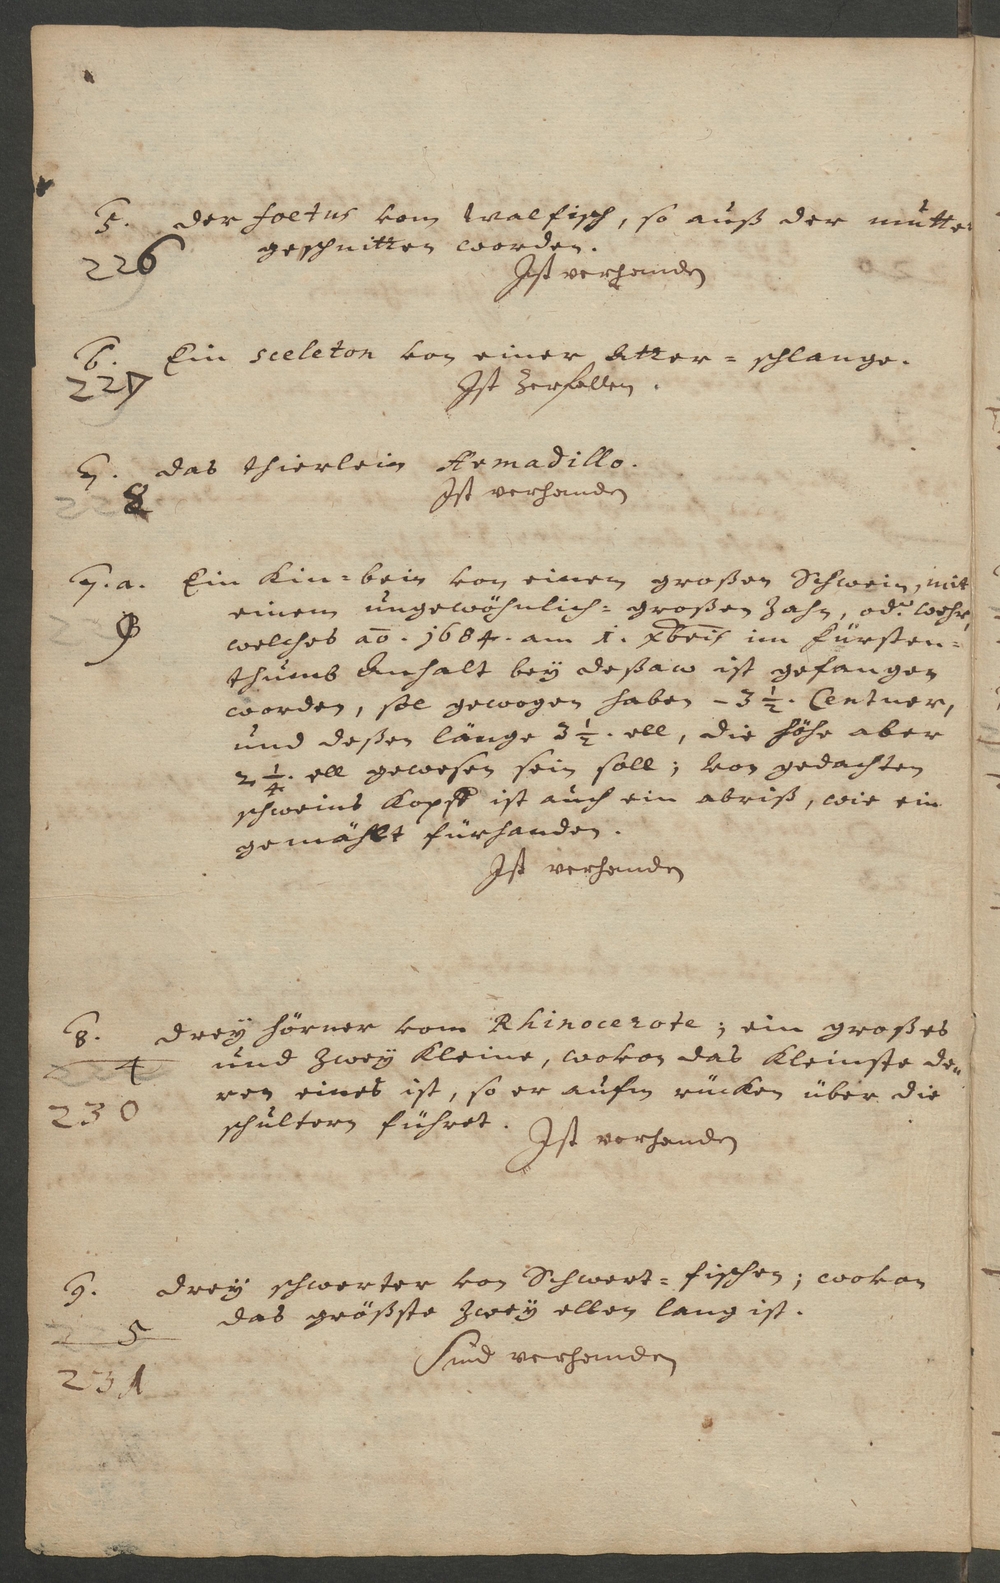 5. der foetus vom Walfisch, so auß der mutter
226 geschnitten worden.
Ist verhanden
6. Ein sceleton von einer Atter=schlange.
227 Ist Zerfallen.
7. das thierlein Armadillo.
228 Ist verhanden
7.a. Ein Kin=bein von einem großen Schwein, mit
9 einem ungewöhnlich=großen Zahn, od. wehr,
welches ao. 1684. am 1. xbris im fürsten=
thumb Anhalt bey deßaw ist gefangen
worden, sol gewogen haben - 3 1/2. Centner,
und deßen länge 3 1/2. ell, die höhe aber
2 1/4. ell gewesen sein soll; von gedachten
schweins Kopff ist auch ein abriß, wie ein
gemählt fürhanden.
Ist verhanden
8. drey hörner vom Rhinocerote; ein großes
4 und zwey kleine, wovon das kleinste de=
230 ren eines ist, so er aufm rücken über die
schultern führet.
Ist verhanden
9. drey schwerter von Schwert=fischen; wovon
das größste zwey ellen lang ist.
5
Sind verhanden
231